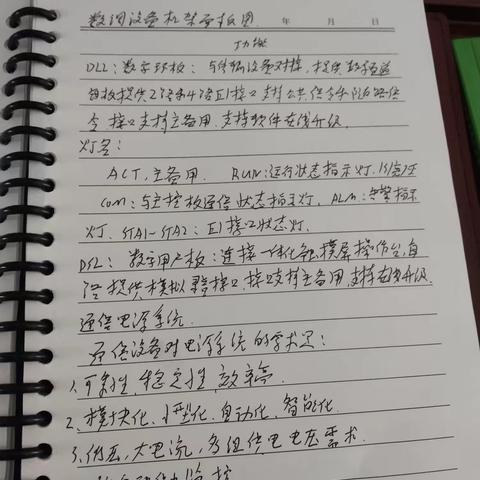 数调设备机架面板图. 年 月 日
功能
DLL:数字环板:与传输设备对接,提供数字通道
每板提供2路和4路E1接口支持公共信令和随路信
令 接口支持主备用,支持软件在线升级.
灯名:
ACT,主备用. RUN:运行状态指示灯,1S亮1S
COM:与主控板通信状态指示灯. ALM:告警指示
灯. STA1-STA2:E1接口状态灯.
DSL:数字用户板:连接一体化触摸屏操作台,每
路提供模拟录音接口,接口支持主备用,支持在线升级.
通信电源系统.
通信设备对电源系统的需求是:
1.可靠性,稳定性,效率高.
2、模块化、小型化、自动化、智能化.
3、低压,大电流,多组供电电压需求.